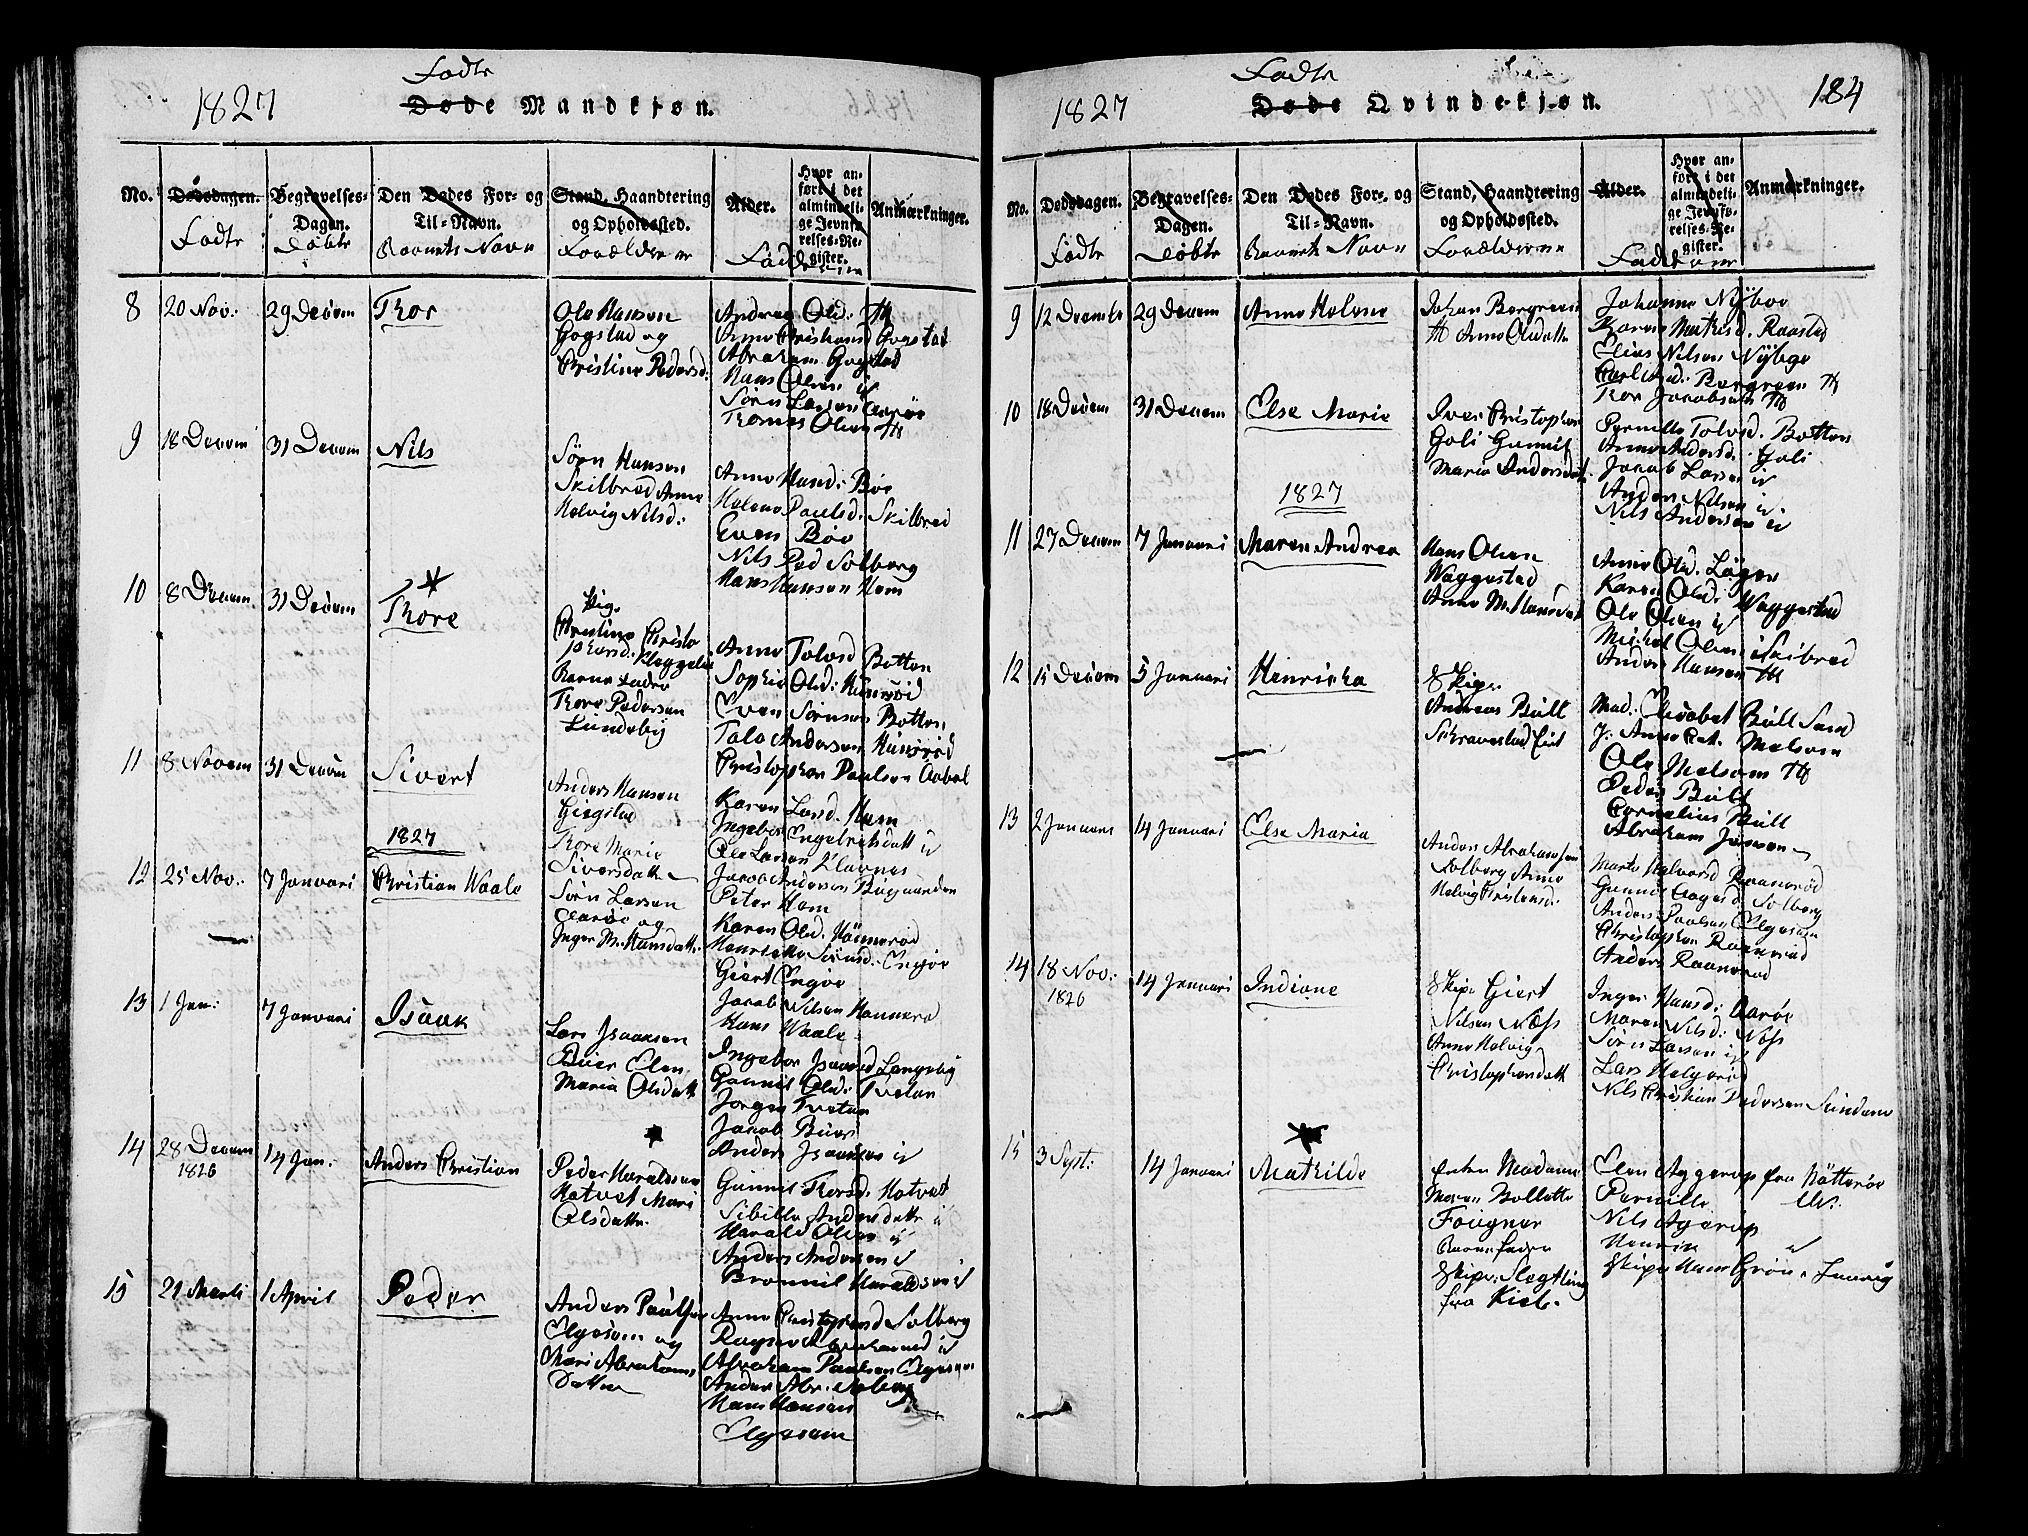 1827
Fødte
Døde Mandkjøn.
No.
Dødsdagen.
Fødte
Begravelses-
Dagen.
Døbte
Den Dødes For- og
Til-Navn.
Barnets Navn
Stand, Haandtering
og Opholdssted.
Forældrene
Alder.
Hvor an-
ført i det
almindeli-
ge Jevnfø-
relses-Re-
gister.
Anmærkninger.
Fadderne
8 20 Nov: 29 Decem Thor
Ole Hansen
Gogstad og
Christine Pedersd:
Andrea Olsd: Th
Anne Christiansd Gogstad
Abraham Gogstad
Hans Olsen
Sørn Larsen Aarøe
Thomas Olsen Th
9 18 Decem 31 Decem Nils
Sørn Hansen
Skilbred Anne
Helvig Nilsd:
Anne Hansd: Bøe
Helene Paulsd: Skilbred
Even Bøe
Nils Ped Solberg
Hans Hansen Hem
10 8 Decem 31 Decem Thore
Pig.
Christine Christo
phersd. Kleggelie
Barnefader
Thore Pedersen
Lundeby
Anne Tolvsd Botten
Sophie Olsd:
Even Sørnsen Botten
Tolv Andersen
Christopher Paulsen
11 8 Novem 31 Decem Sivert
Anders Hansen
Giegstad
Thore Marie
Siversdatter
Karen Larsd. Hem
Ingebor Engelbretsdatt
Ole Larsen Klavnes
Jacob Andersen Bugaarden
Peter Hem
1827
12 25 Nov: 7 Januari Christian Waale
Sørn Larsen
Aarøe og
Inger M. Hansdatt.
Karen Olsd. Hønnerød
Henriette Sørnsd. Engøe
Giert Engøe
Jacob Nilsen Hønnerød
Hans Waale
13 1 Jan: 7 Januari Isaak
Lars Isaaksen
Buer Elen
Maria Olsdatt
Ingebor Isaaksd Langeby
Gunnil Olsd: Tvetan
Jørgen Tvetan
Jacob Buer
Anders Isaaksen
14 28 Decem
1826
14 Jan: Anders Christian
Peder Haraldsen
Hotvet Mari
Olsdatter
Gunnil Thorsd. Hotvet
Sibille Andersdatter
Harald Olsen
Anders Andersen
Bronnil Haraldsen
15 21 Marti 1 April Peder
Anders Paulsen
Elgesem og
Mari Abrahams
Datter
Anne Christophersd Solberg
Abrahamsd
Abraham Paulsen Elgesem
Anders Abr. Solberg
Hans Hansen
Elgesem
1827
Fødte
Døde Qvindekjøn.
184
No.
Dødsdagen.
Fødte
Begravelses-
Dagen.
Døbte
Den Dødes For- og
Til-Navn.
Barnets Navn
Stand, Haandtering
og Opholdssted.
Forældrene
Alder.
Hvor an-
ført i det
almindeli-
ge Jevnfø-
relses-Re-
gister.
Anmærkninger.
Fadderne
9 12 Decembr 29 Decem Anne Helene
Johan Borgresen
Th Anne Olsdatter
Johanne Nyboe
Karen Mathisd. Raastad
Elias Nilsen Nyboe
Borgresen Th
Thor Jacobsen Th
10 18 Decem 31 Decem Else Marie
Iver Christophers
Goli Gunnil
Maria Andersdat
Pernille Tolvsd. Botten
Anne Andersd. Goli
Jacob Larsen
Anders Nilsen
Nils Andersen
1827
11 27 Decem 7 Januari Maren Andrea
Hans Olsen
Waggestad
Anne M. Hansdat
Anne Olsd. Løger
Karen Olsd. Waggestad
Ole Olsen
Michel Olsen Skibred
Anders Hansen Th
12 15 Decem 5 Januari Henricka
Skipr
Andreas Bull
Skravestad
Mad. Elisabet Bull Sand
J. Anne Cat. Melsom
Ole Melsom Th
Peder Bull
Cornelius Bull
Abraham Jansen
13 2 Januar 14 Januari Else Maria
Anders Abrahamsen
Solberg Anne
Helvig Christensd.
Marte Halvorsd Raanerød
Gunnil Aagesd: Solberg
Anders Paulsen Elgesem
Christopher Raanerød
Anders Raanerød
14 18 Nov:
1826
14 Januari Indiane
Skipr Giert
Nilsen Næss
Anne Helvig
Christophersdatt
Inger Hansd: Aarøe
Maren Nilsd: Næss
Sørn Larsen
Lars Helgerød
Nils Christian Pedersen Sundene
15 3 Sept: 14 Januari Mathilde
Enken Madame
Maren Bollette
Fougner
Barnefader
Skipr: Slegtling
fra Kiel.
Elen Aggerup fra Nøtterøe
Pernille
Nils Agerup
Henrik
Skipr Hans Grøn Laurvig